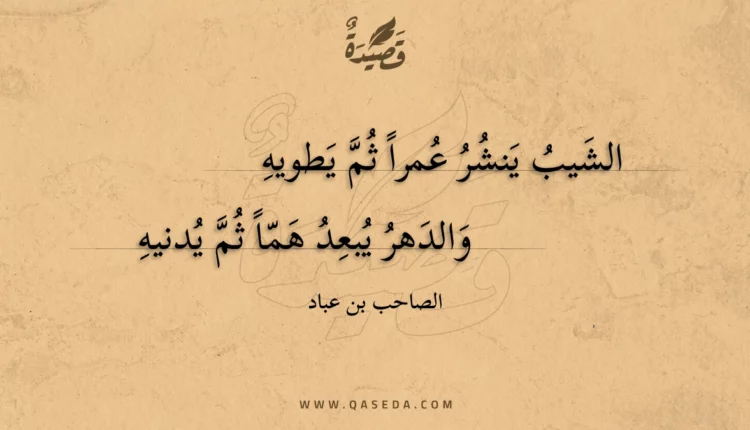 قَصِيدَةٌ
الشَيبُ يَنشُرُ عُمراً ثُمَّ يَطويهِ
وَالدَهرُ يُبعِدُ هَمّاً ثُمَّ يُدنيهِ
الصاحب بن عباد
WWW.QASEDA.COM